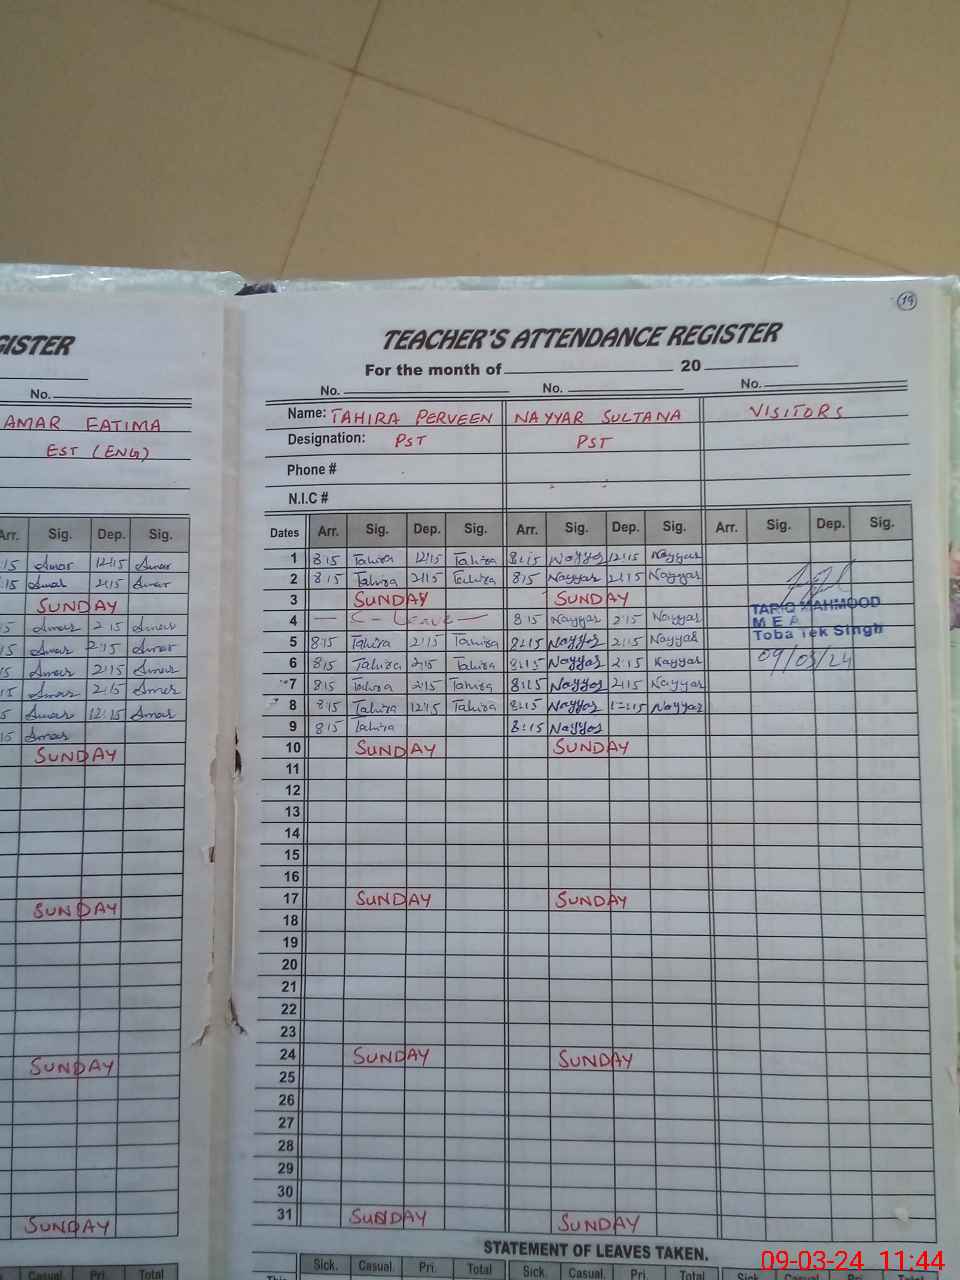 GISTER
No.
AMAR FATIMA
EST (ENG)
Arr. Sig. Dep. Sig.
:15 Amar 12:15 Amar
:15 Amar 2:15 Amar
SUNDAY
15 Amar 2:15 Amar
15 Amar 2:15 Amar
15 Amar 2:15 Amar
15 Amar 2:15 Amar
5 Amar 12:15 Amar
15 Amar
SUNDAY
SUNDAY
SUNDAY
SUNDAY
Casual. Pri. Total
19
TEACHER'S ATTENDANCE REGISTER
For the month of 20
No. No. No.
Name: TAHIRA PERVEEN NAYYAR SULTANA VISITORS
Designation: PST PST
Phone #
N.I.C #
Dates Arr. Sig. Dep. Sig. Arr. Sig. Dep. Sig. Arr. Sig. Dep. Sig.
1 8:15 Tahira 12:15 Tahira 8:15 Nayyar 12:15 Nayyar
2 8:15 Tahira 2:15 Tahira 8:15 Nayyar 2:15 Nayyar
3 SUNDAY SUNDAY
4 C - Leave 8:15 Nayyar 2:15 Nayyar
5 8:15 Tahira 2:15 Tahira 8:15 Nayyar 2:15 Nayyar
6 8:15 Tahira 2:15 Tahira 8:15 Nayyar 2:15 Nayyar
7 8:15 Tahira 2:15 Tahira 8:15 Nayyar 2:15 Nayyar
8 8:15 Tahira 12:15 Tahira 8:15 Nayyar 12:15 Nayyar
9 8:15 Tahira 8:15 Nayyar
TARIQ MAHMOOD
M E A
Toba Tek Singh
09/03/24
10 SUNDAY SUNDAY
11
12
13
14
15
16
17 SUNDAY SUNDAY
18
19
20
21
22
23
24 SUNDAY SUNDAY
25
26
27
28
29
30
31 SUNDAY SUNDAY
STATEMENT OF LEAVES TAKEN.
This Sick. Casual. Pri. Total Sick. Casual. Pri. Total Sick. Casual. Pri. Total
09-03-24 11:44